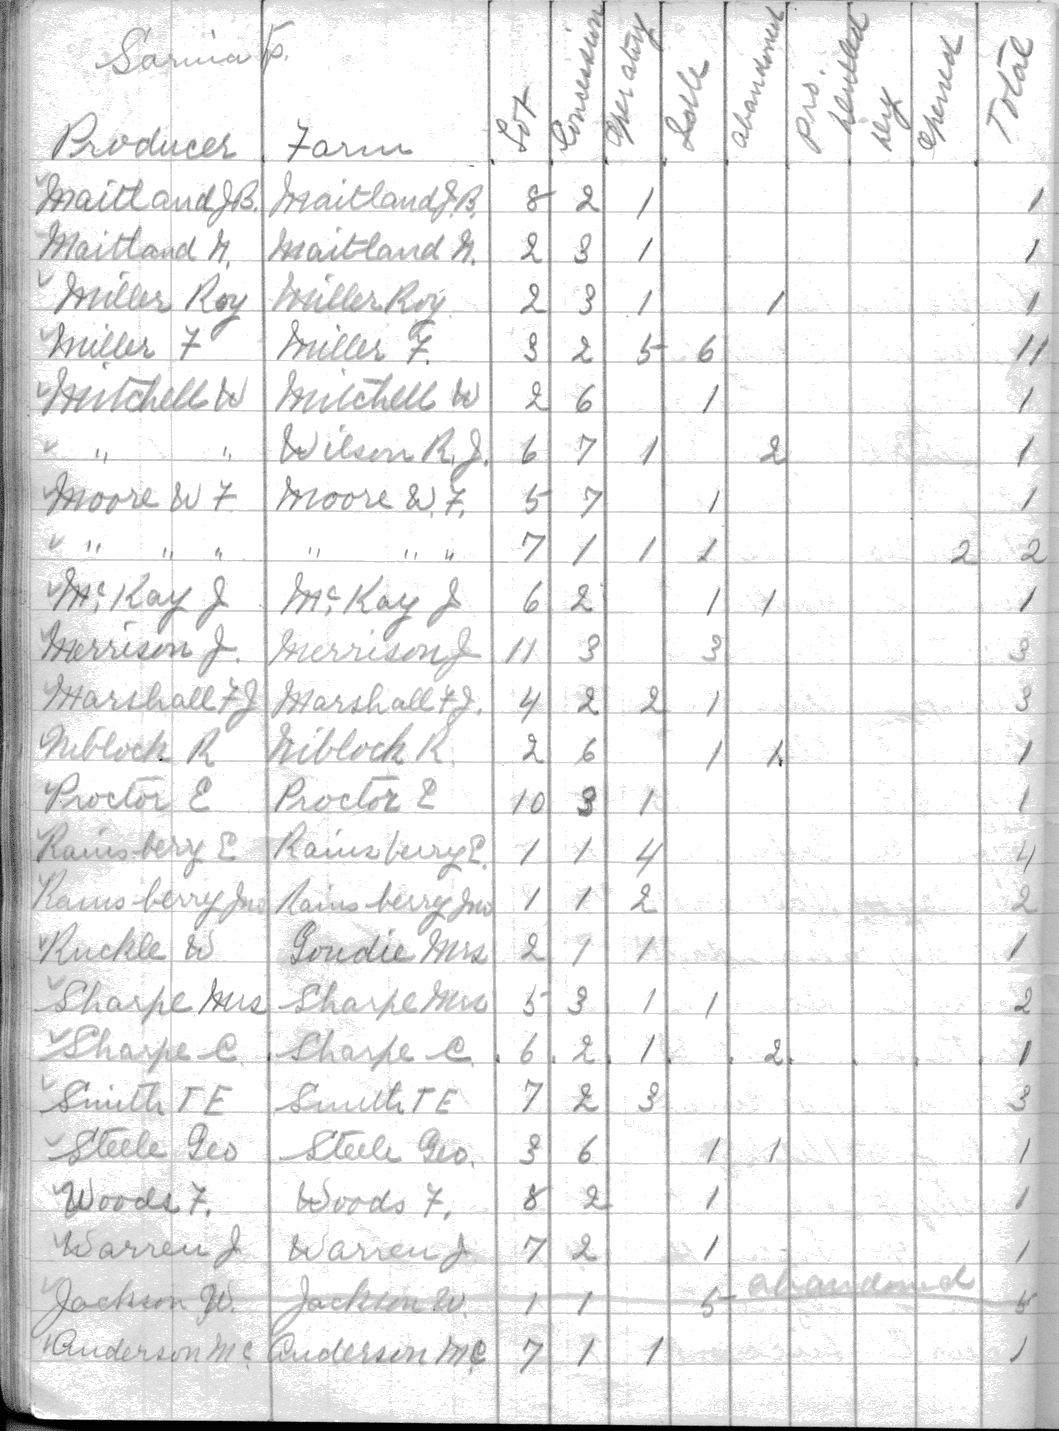 Sarnia Tp.
Producer Farm Lot Concession Operating Idle abandoned pro. drilled dry opened Total
Maitland J.B. Maitland J.B. 8 2 1 1
Maitland N. Maitland N. 2 3 1 1
Miller Roy Miller Roy 2 3 1 1 1
Miller F Miller F. 3 2 5 6 11
Mitchell W Mitchell W 2 6 1 1
" " Wilson R.J. 6 7 1 2 1
Moore W F Moore W.F. 5 7 1 1
" " " " " " 7 1 1 1 2 2
Mc Kay J Mc Kay J 6 2 1 1 1
Merrison J. Merrison J 11 3 3 3
Marshall F J Marshall F J. 4 2 2 1 3
Niblock R Niblock R. 2 6 1 1 1
Proctor E Proctor E 10 3 1 1
Rainsbery E Rainsberry E. 1 1 4 4
Rainsberry Jno Rainsberry Jno 1 1 2 2
Ruckle W Goudie Mrs 2 1 1 1
Sharpe Mrs Sharpe Mrs 5 3 1 1 2
Sharpe C. Sharpe C. 6 2 1 2 1
Smith T E Smith T E 7 2 3 3
Steele Geo Steele Geo. 3 6 1 1 1
Woods F. Woods F. 8 2 1 1
Warren J Warren J. 7 2 1 1
Jackson W. Jackson W. 1 1 5 abandoned 5
Anderson Mc Anderson Mc 7 1 1 1